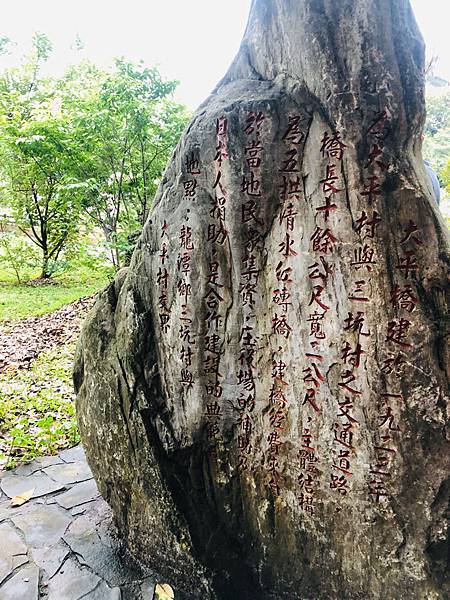 大平橋建於一九二三年
為大平村與三坑村之交通道路
橋長十餘公尺寬二公尺主體結構
為五拱清水紅磚橋建橋經費來
於當地民眾集資庄役場的補助
日本人捐助是合作建設的典範
地點龍潭鄉三坑村與
大平村交界